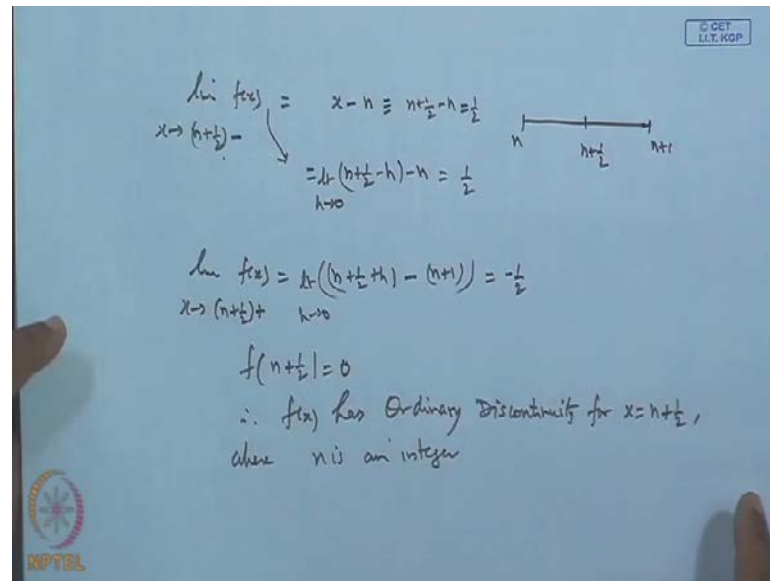 © CET
I.I.T. KGP
lim f(x) = x - n ≡ n+1/2 - n = 1/2
x→(n+1/2)-
n n+1/2 n+1
= lt (n+1/2-h) - n = 1/2
h→0
lim f(x) = lt ((n+1/2+h) - (n+1)) = -1/2
x→(n+1/2)+ h→0
f(n+1/2) = 0
∴ f(x) has Ordinary Discontinuity for x = n+1/2,
where n is an integer
NPTEL